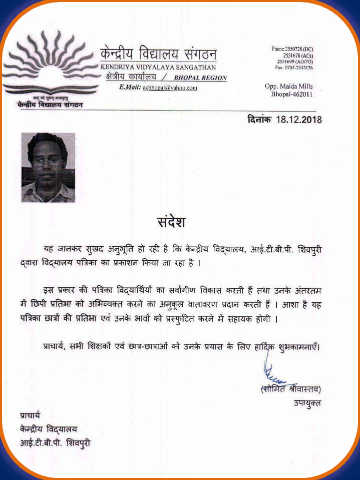 केन्द्रीय विद्यालय संगठन
KENDRIYA VIDYALAYA SANGATHAN
क्षेत्रीय कार्यालय / BHOPAL REGION
E.Mail:
केन्द्रीय विद्यालय संगठन
Opp. Maida Mills
Bhopal-462011
दिनांक 18.12.2018
संदेश
यह जानकर सुखद अनुभूति हो रही है कि केन्द्रीय विद्यालय, आई.टी.बी.पी. शिवपुरी
द्वारा विद्यालय पत्रिका का प्रकाशन किया जा रहा है ।
इस प्रकार की पत्रिका विद्यार्थियों का सर्वांगीण विकास करती हैं तथा उनके अंतरतम
में छिपी प्रतिभा को अभिव्यक्त करने का अनुकूल वातावरण प्रदान करती हैं । आशा है यह
पत्रिका छात्रों की प्रतिभा एवं उनके भावों को प्रस्फुटित करने में सहायक होगी ।
प्राचार्य, सभी शिक्षकों एवं छात्र-छात्राओं को उनके प्रयास के लिए हार्दिक शुभकामनाएँ।
(सोमित श्रीवास्तव)
उपायुक्त
प्राचार्य
केन्द्रीय विद्यालय
आई.टी.बी.पी. शिवपुरी